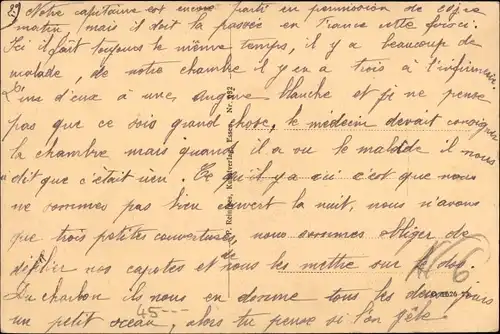 29
Notre capitaine est encore parti en permission de cette
matin, mais il doit la passée en France cette fois ci
Ici il fait toujours le même temps, il y a beaucoup de
malade, de notre chambre il y en a trois à l'infirmerie.
L'un d'eux à une angine blanche et je ne pense
pas que ce sois grand chose, le medecin devait consigner
la chambre mais quand il a vu le malade il nous
dit que c'était rien. Ce qu'il y a ici c'est que nous
ne sommes pas bien couvert la nuit, nous n'avons
que trois petites couvertures, nous sommes obliger de
déplier nos capotes et nous les mettre sur le dos.
Du charbon ils nous en donne tous les deux jours
un petit sceau, alors tu pense si l'on gèle.
P. Reinges, Kunstverlag, Essen Nr. 392
45---